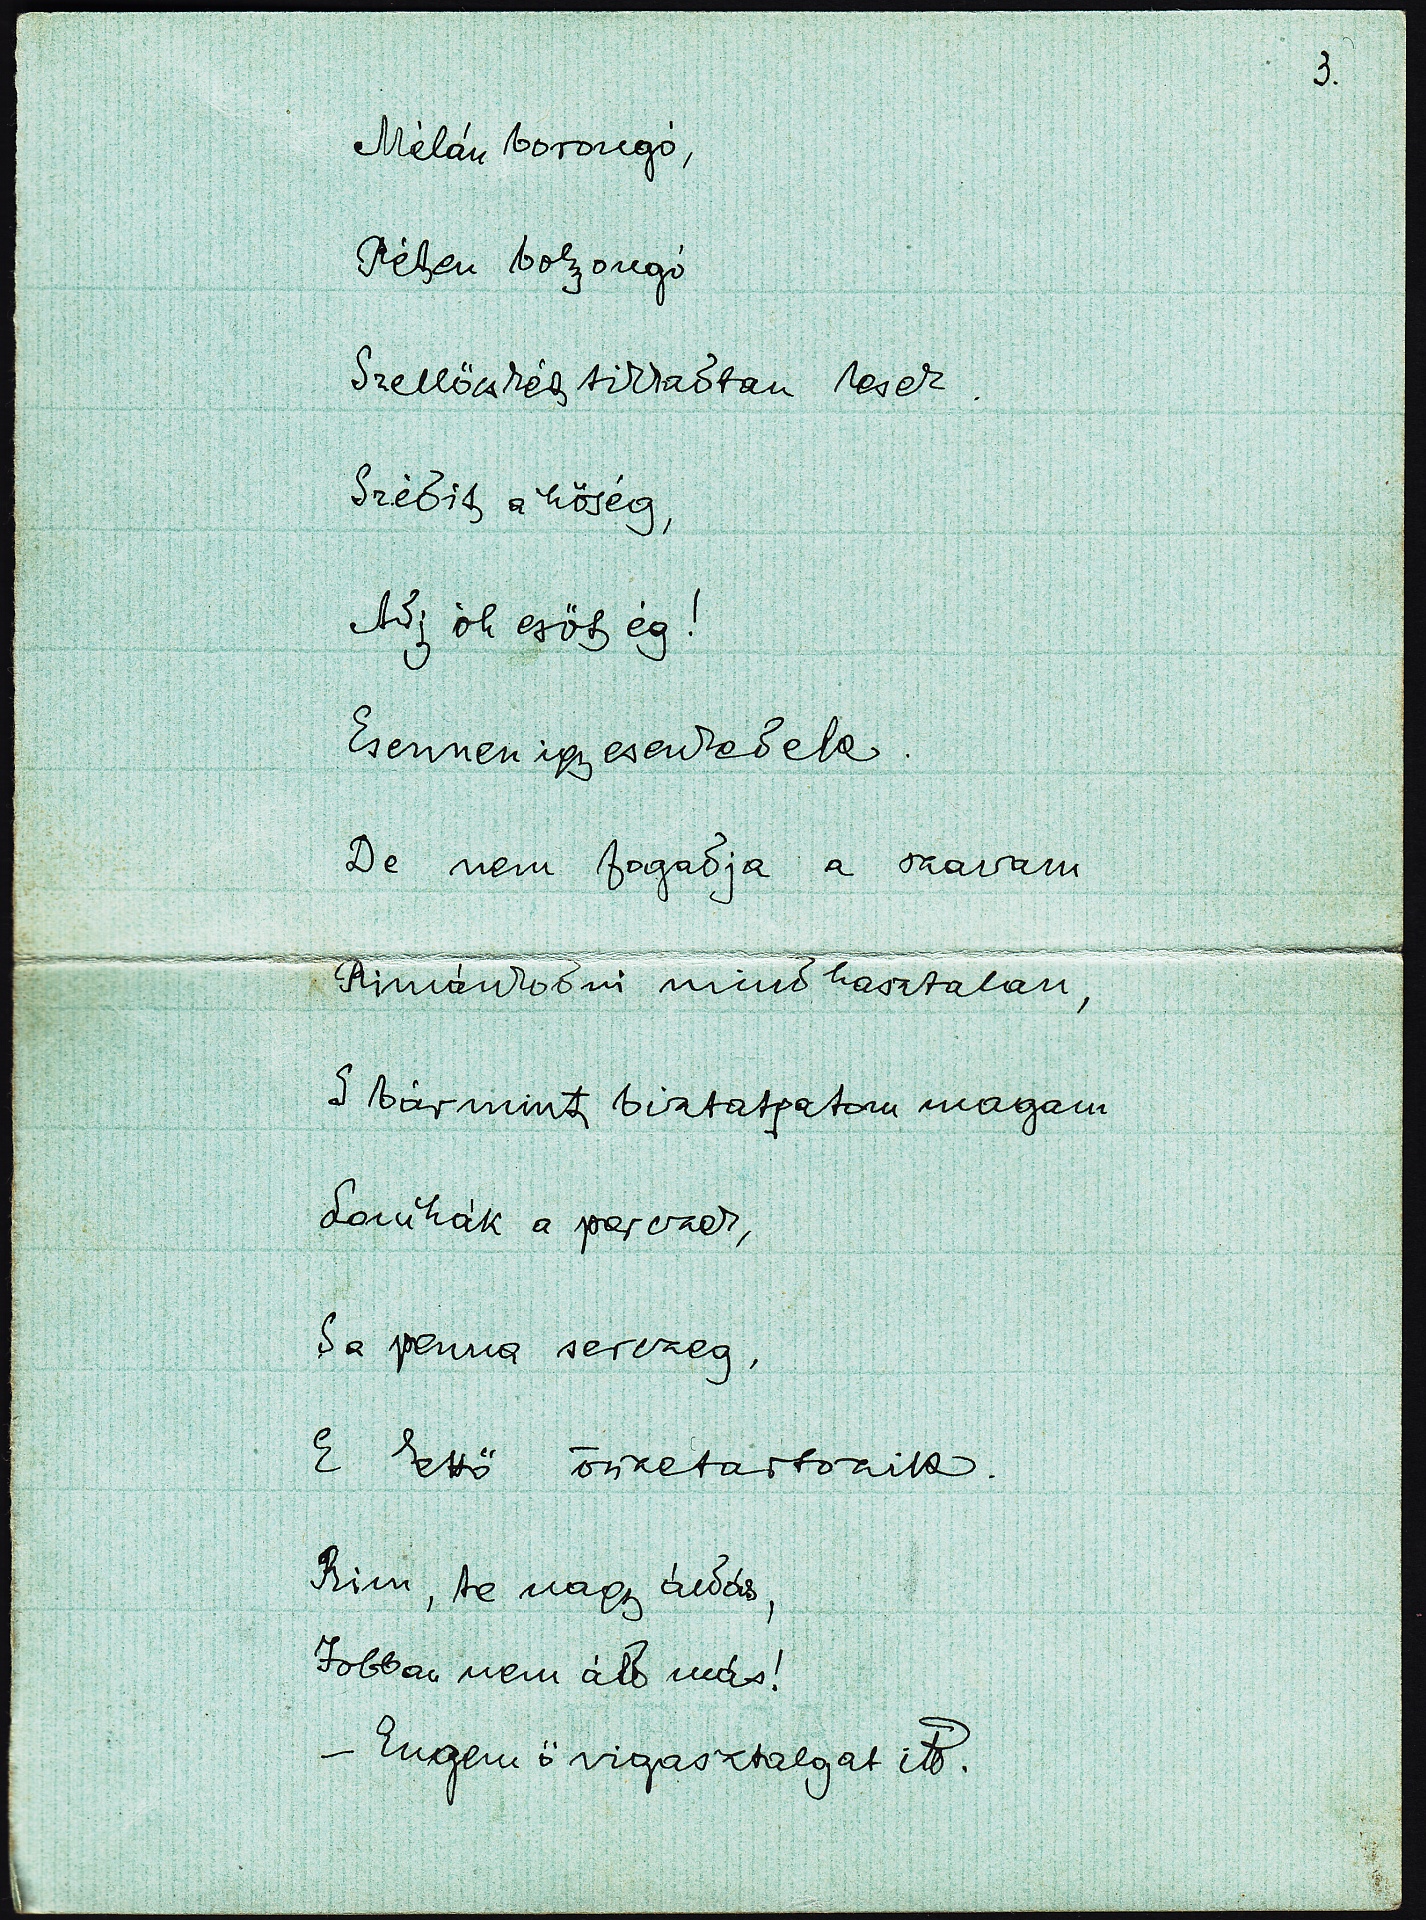 3.
Mélán borongó,
Réten bolyongó
Szellőcskét tikkadtan lesek.
Szédit a hőség,
Adj óh esőt ég!
Esennen igy esenkedek.
De nem fogadja a szavam
Rimánkodni mind hasztalan,
S bármint biztatgatom magam
Lomhák a perczek,
S a penna serczeg,
E kettő összetartozik.
Rim, te nagy áldás,
Jobban nem áld más!
— Engem ő vigasztalgat itt.